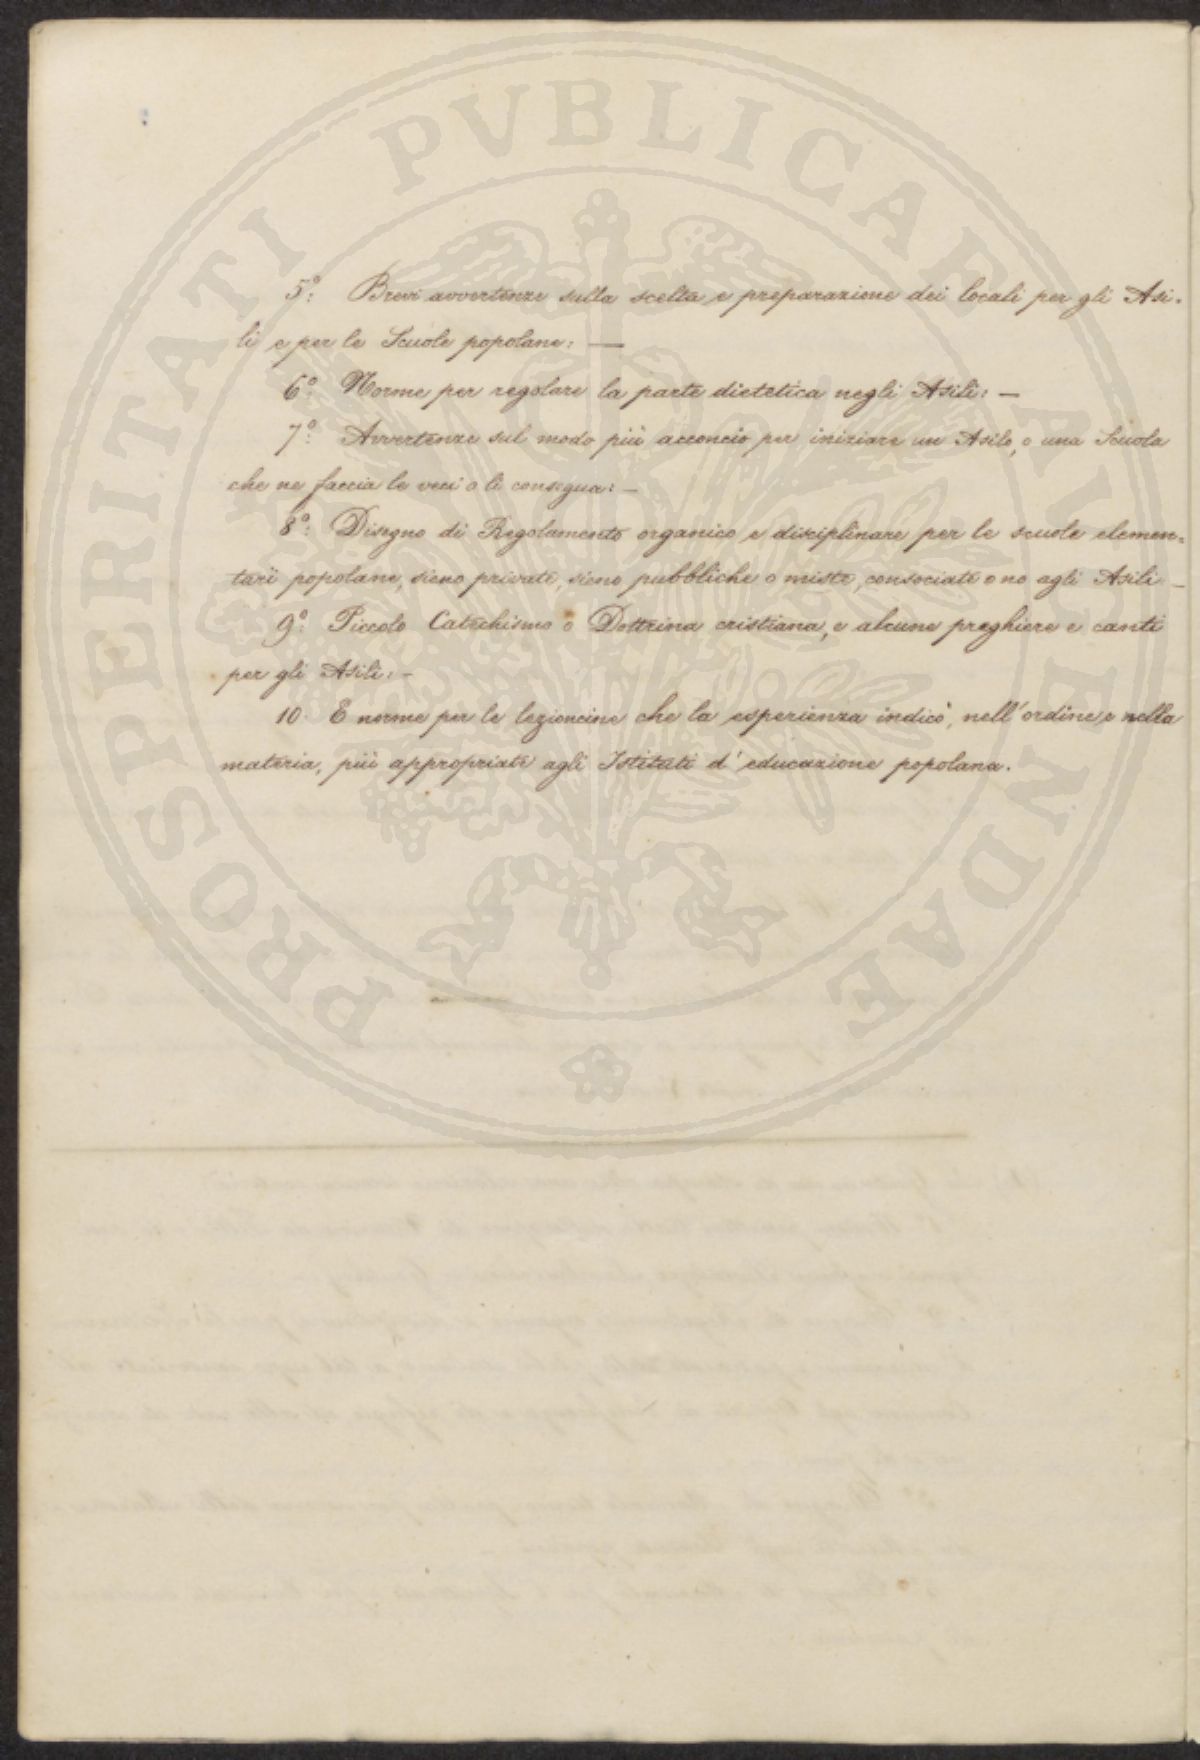 PROSPERITATI PVBLICAE AVGENDAE
5º: Brevi avvertenze sulla scelta e preparazione dei locali per gli Asi-
li e per le Scuole popolane: —
6º: Norme per regolare la parte dietetica negli Asili: —
7º: Avvertenze sul modo più acconcio per iniziare un Asilo, o una Scuola
che ne faccia le veci o li consegua: —
8º: Disegno di Regolamento organico e disciplinare per le scuole elemen-
tari popolane, sieno private, sieno pubbliche o miste, consociate o no agli Asili —
9º: Piccolo Catechismo o Dottrina cristiana, e alcune preghiere e canti
per gli Asili: —
10 E norme per le lezioncine che la esperienza indicò, nell'ordine e nella
materia, più appropriate agli Istituti d'educazione popolana.